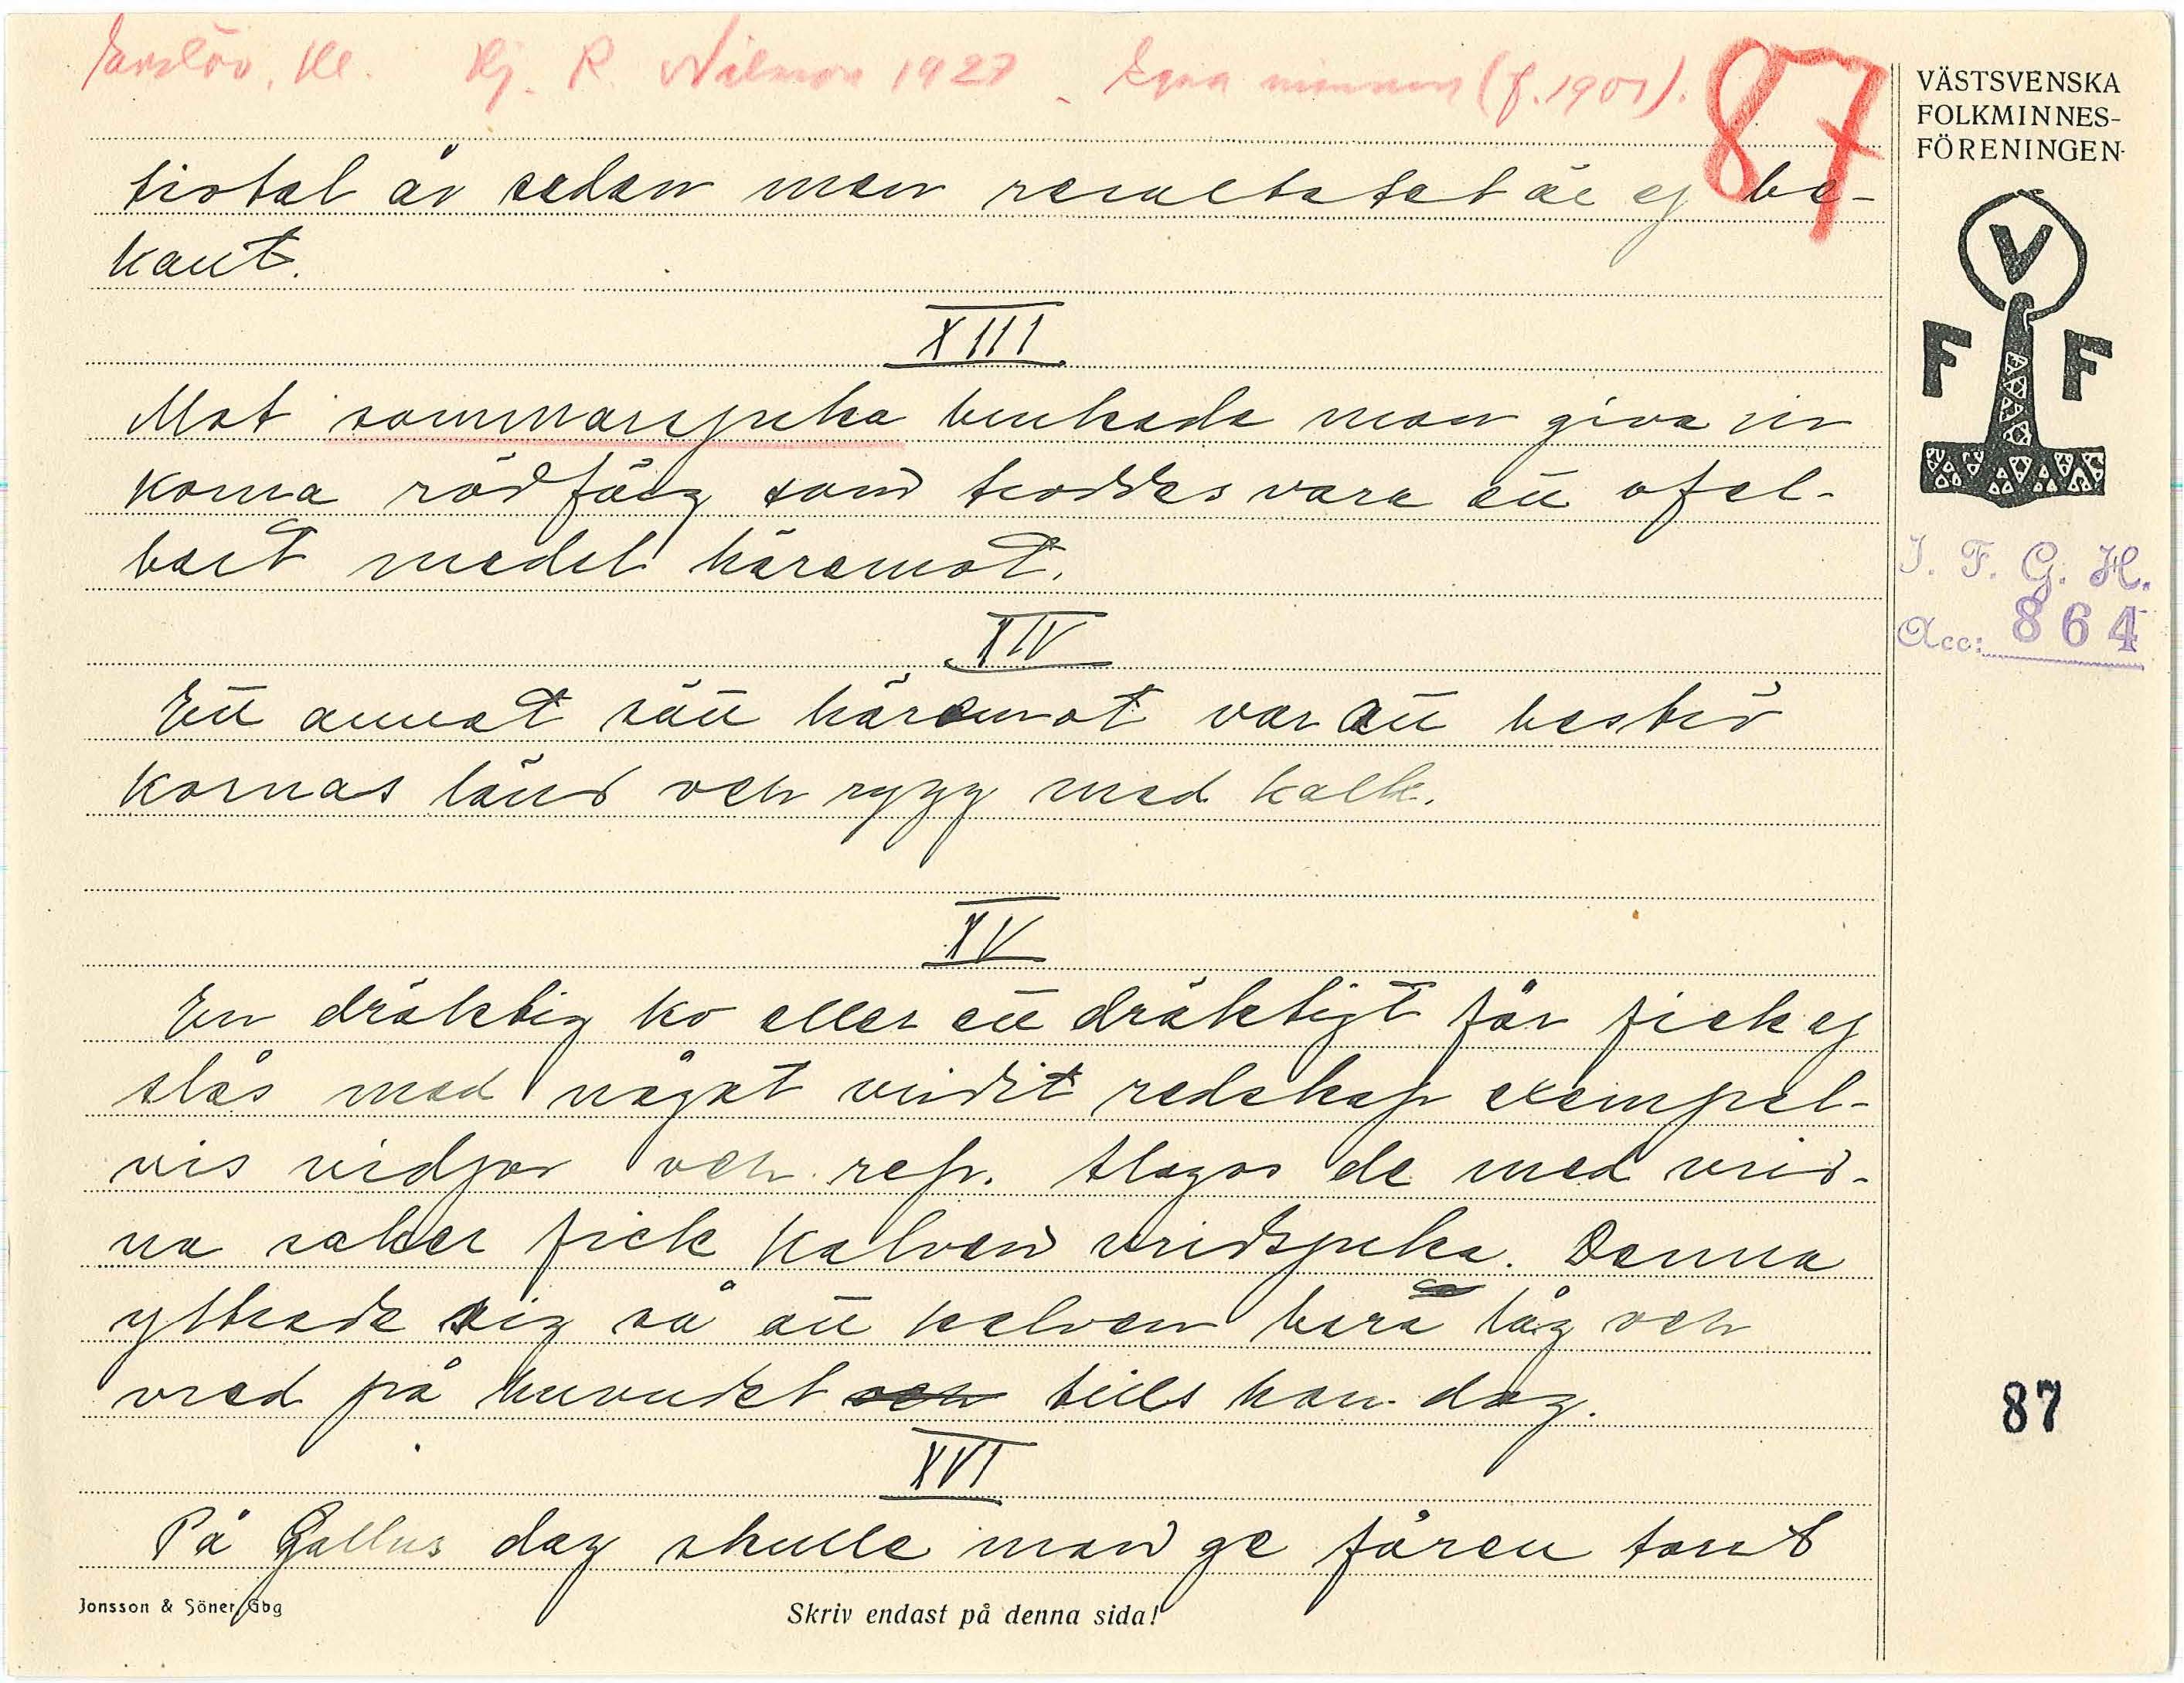 Enslöv, Hl. Hj. R. Nilsson 1927. Egna minnen (f. 1907).
87
VÄSTSVENSKA
FOLKMINNES-
FÖRENINGEN
V
F F
I. F. G. H.
Acc: 864
tiotal år sedan men resultatet är ej be-
kant.
XIII
Mot sommarsjuka brukade man giva in
korna rödfärg som troddes vara ett ofel-
bart medel häremot.
XIV
Ett annat sätt häremot var att beströ
kornas länd och rygg med kalk.
XV
En dräktig ko eller ett dräktigt får fick ej
slås med något vridit redskap exempel-
vis vidjor och rep. Slogos de med vrid-
na saker fick kalven vridsjuka. Denna
yttrade sig så att kalven bara låg och
vred på huvudet och tills han dog.
87
XVI
På Gallus dag skulle man ge fåren torrt
Jonsson & Söner, Gbg
Skriv endast på denna sida!